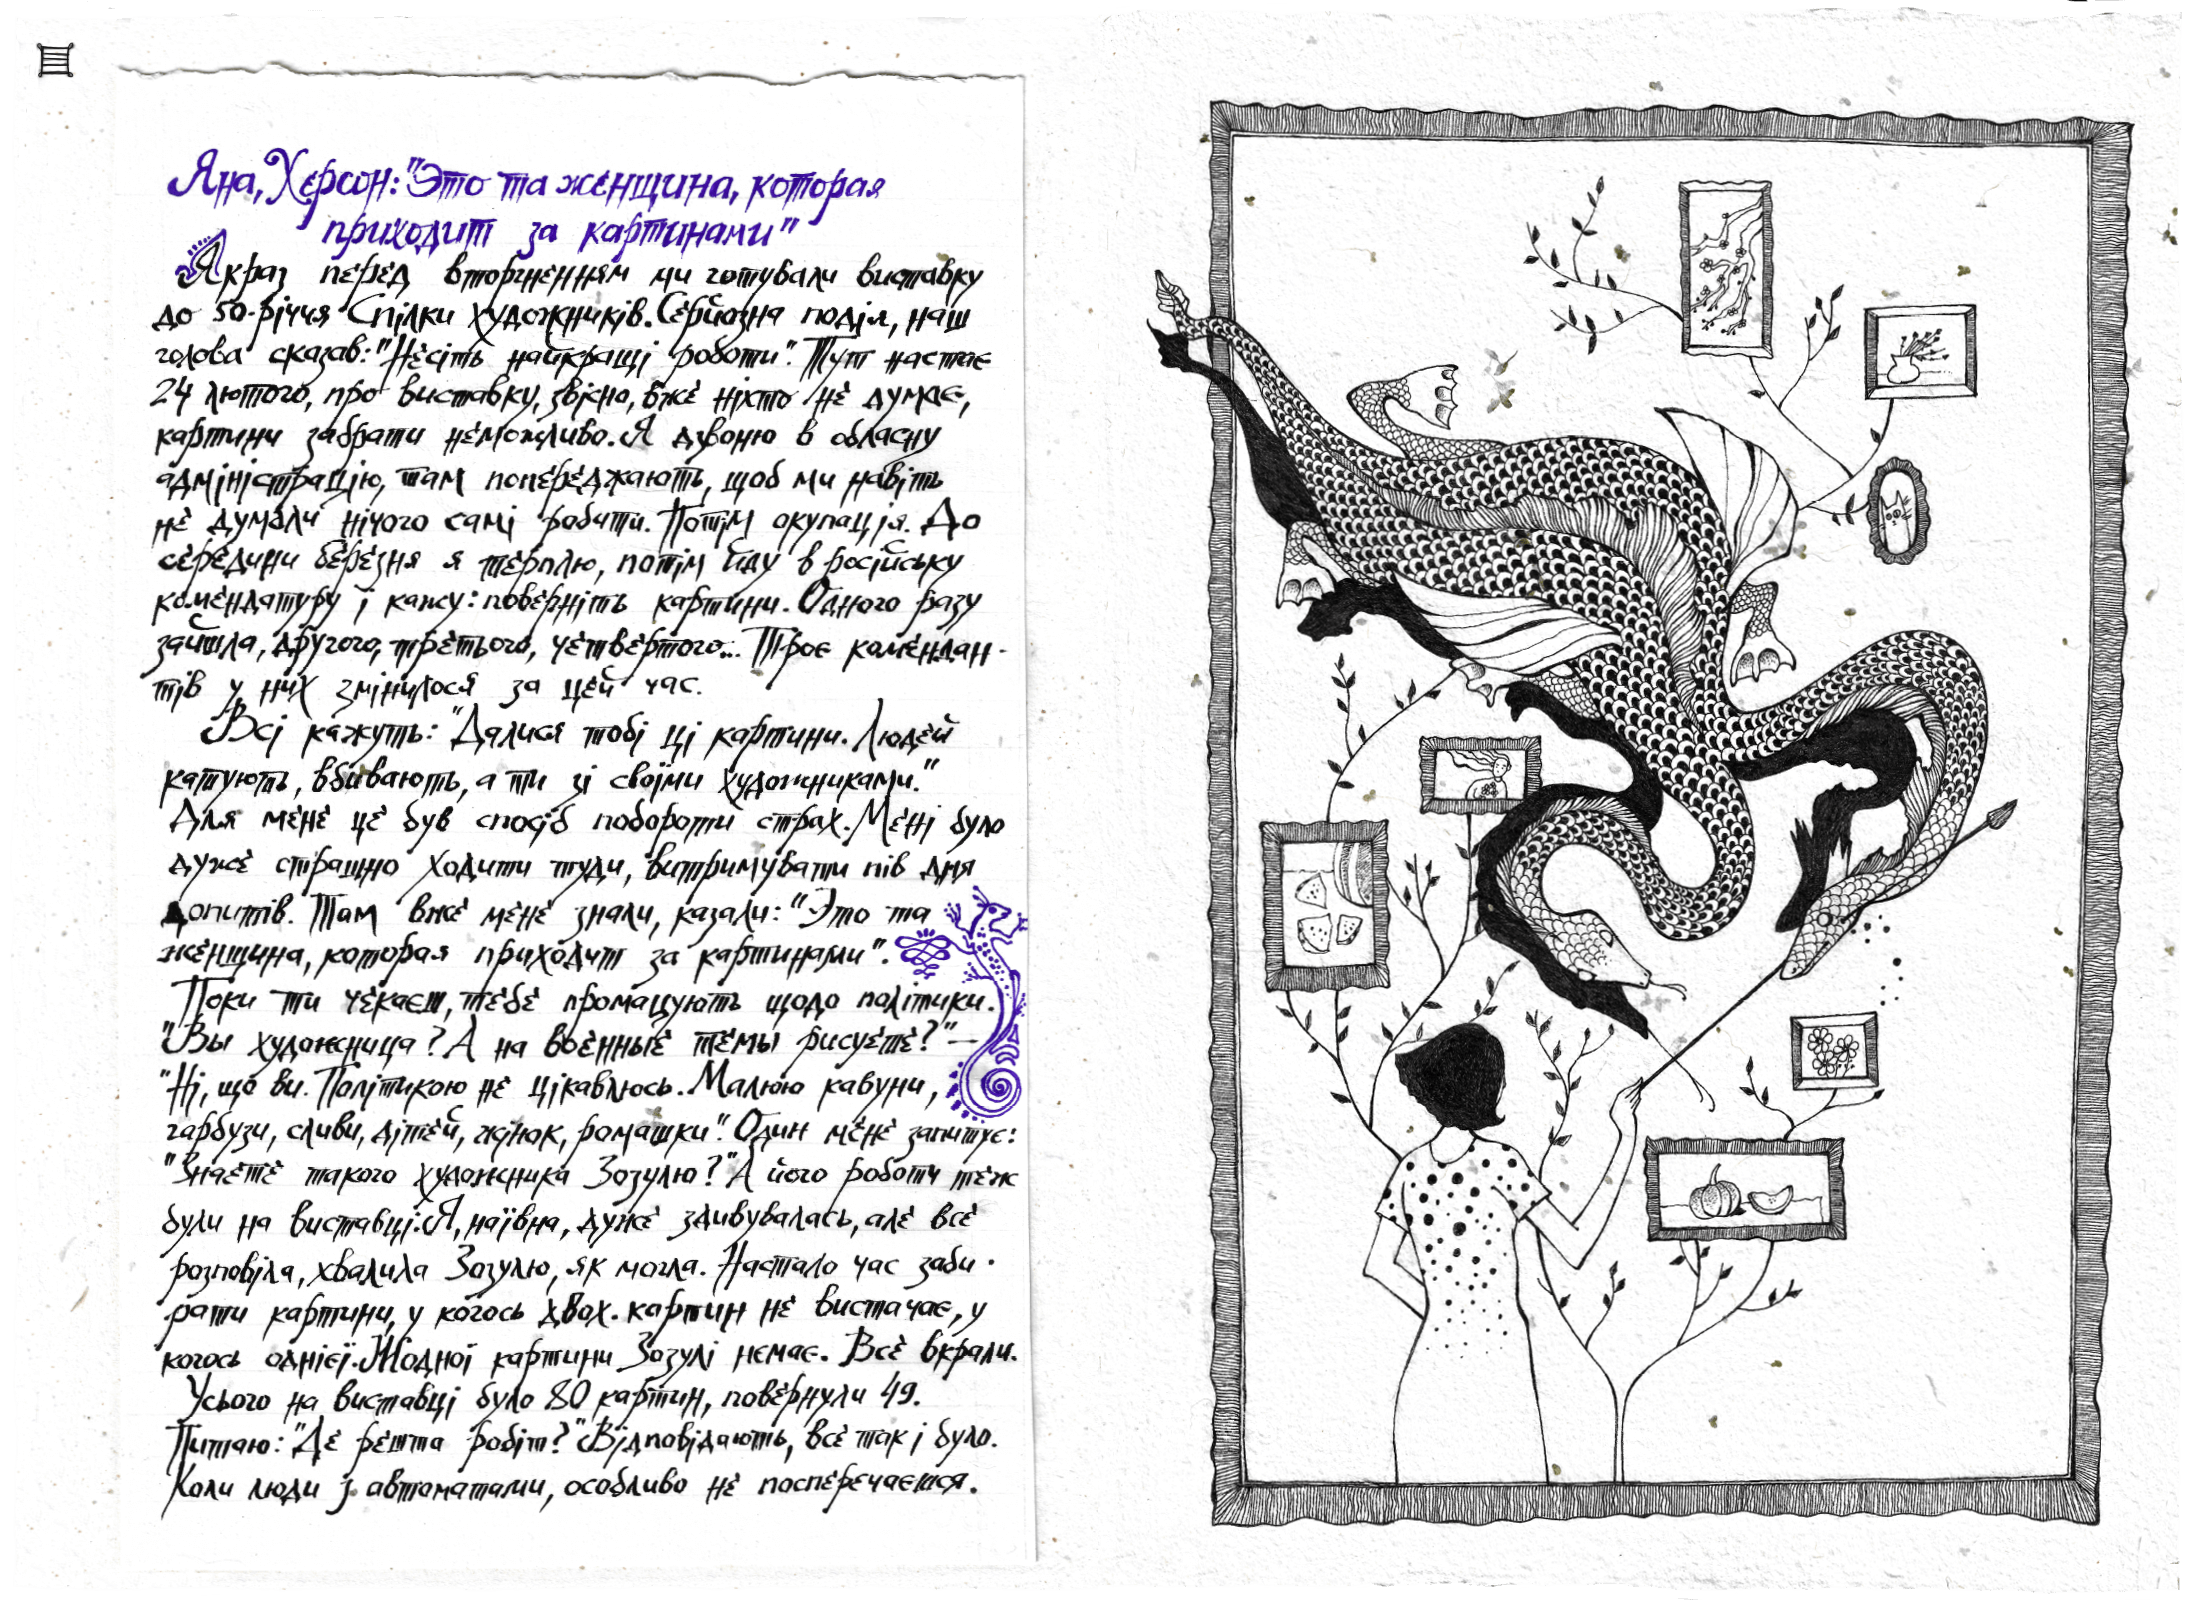 Яна, Херсон: "Это та женщина, которая
приходит за картинами"
Якраз перед вторгненням ми готували виставку
до 50-річчя Спілки художників. Серйозна подія, наш
голова сказав: "Несіть найкращі роботи". Тут настає
24 лютого, про виставку, звісно, вже ніхто не думає,
картини забрати неможливо. Я дзвоню в обласну
адміністрацію, там попереджають, щоб ми навіть
не думали нічого самі робити. Потім окупація. До
середини березня я терплю, потім йду в російську
комендатуру і кажу: поверніть картини. Одного разу
зайшла, другого, третього, четвертого... Троє комендан-
тів у них змінилося за цей час.
Всі кажуть: "Далися тобі ці картини. Людей
катують, вбивають, а ти зі своїми художниками."
Для мене це був спосіб побороти страх. Мені було
дуже страшно ходити туди, витримувати пів дня
допитів. Там вже мене знали, казали: "Это та
женщина, которая приходит за картинами".
Поки ти чекаєш, тебе промацують щодо політики.
"Вы художница? А на военные темы рисуете?" —
"Ні, що ви. Політикою не цікавлюсь. Малюю кавуни,
гарбузи, сливи, дітей, жінок, ромашки". Один мене запитує:
"Знаете такого художника Зозулю?" А його роботи теж
були на виставці. Я, наївна, дуже здивувалась, але все
розповіла, хвалила Зозулю, як могла. Настало час заби-
рати картини, у когось двох картин не вистачає, у
когось однієї. Жодної картини Зозулі немає. Все вкрали.
Усього на виставці було 80 картин, повернули 49.
Питаю: "Де решта робіт?" Відповідають, все так і було.
Коли люди з автоматами, особливо не посперечаєшся.